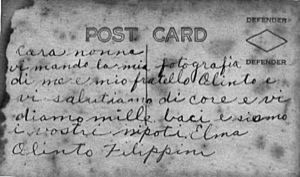 POST CARD
DEFENDER
DEFENDER
cara nonna
vi mando la mia fotografia
di me e mio fratello Olinto e
vi salutiamo di core e vi
diamo mille baci e siamo
i vostri nipoti Elma
Olinto Filippini